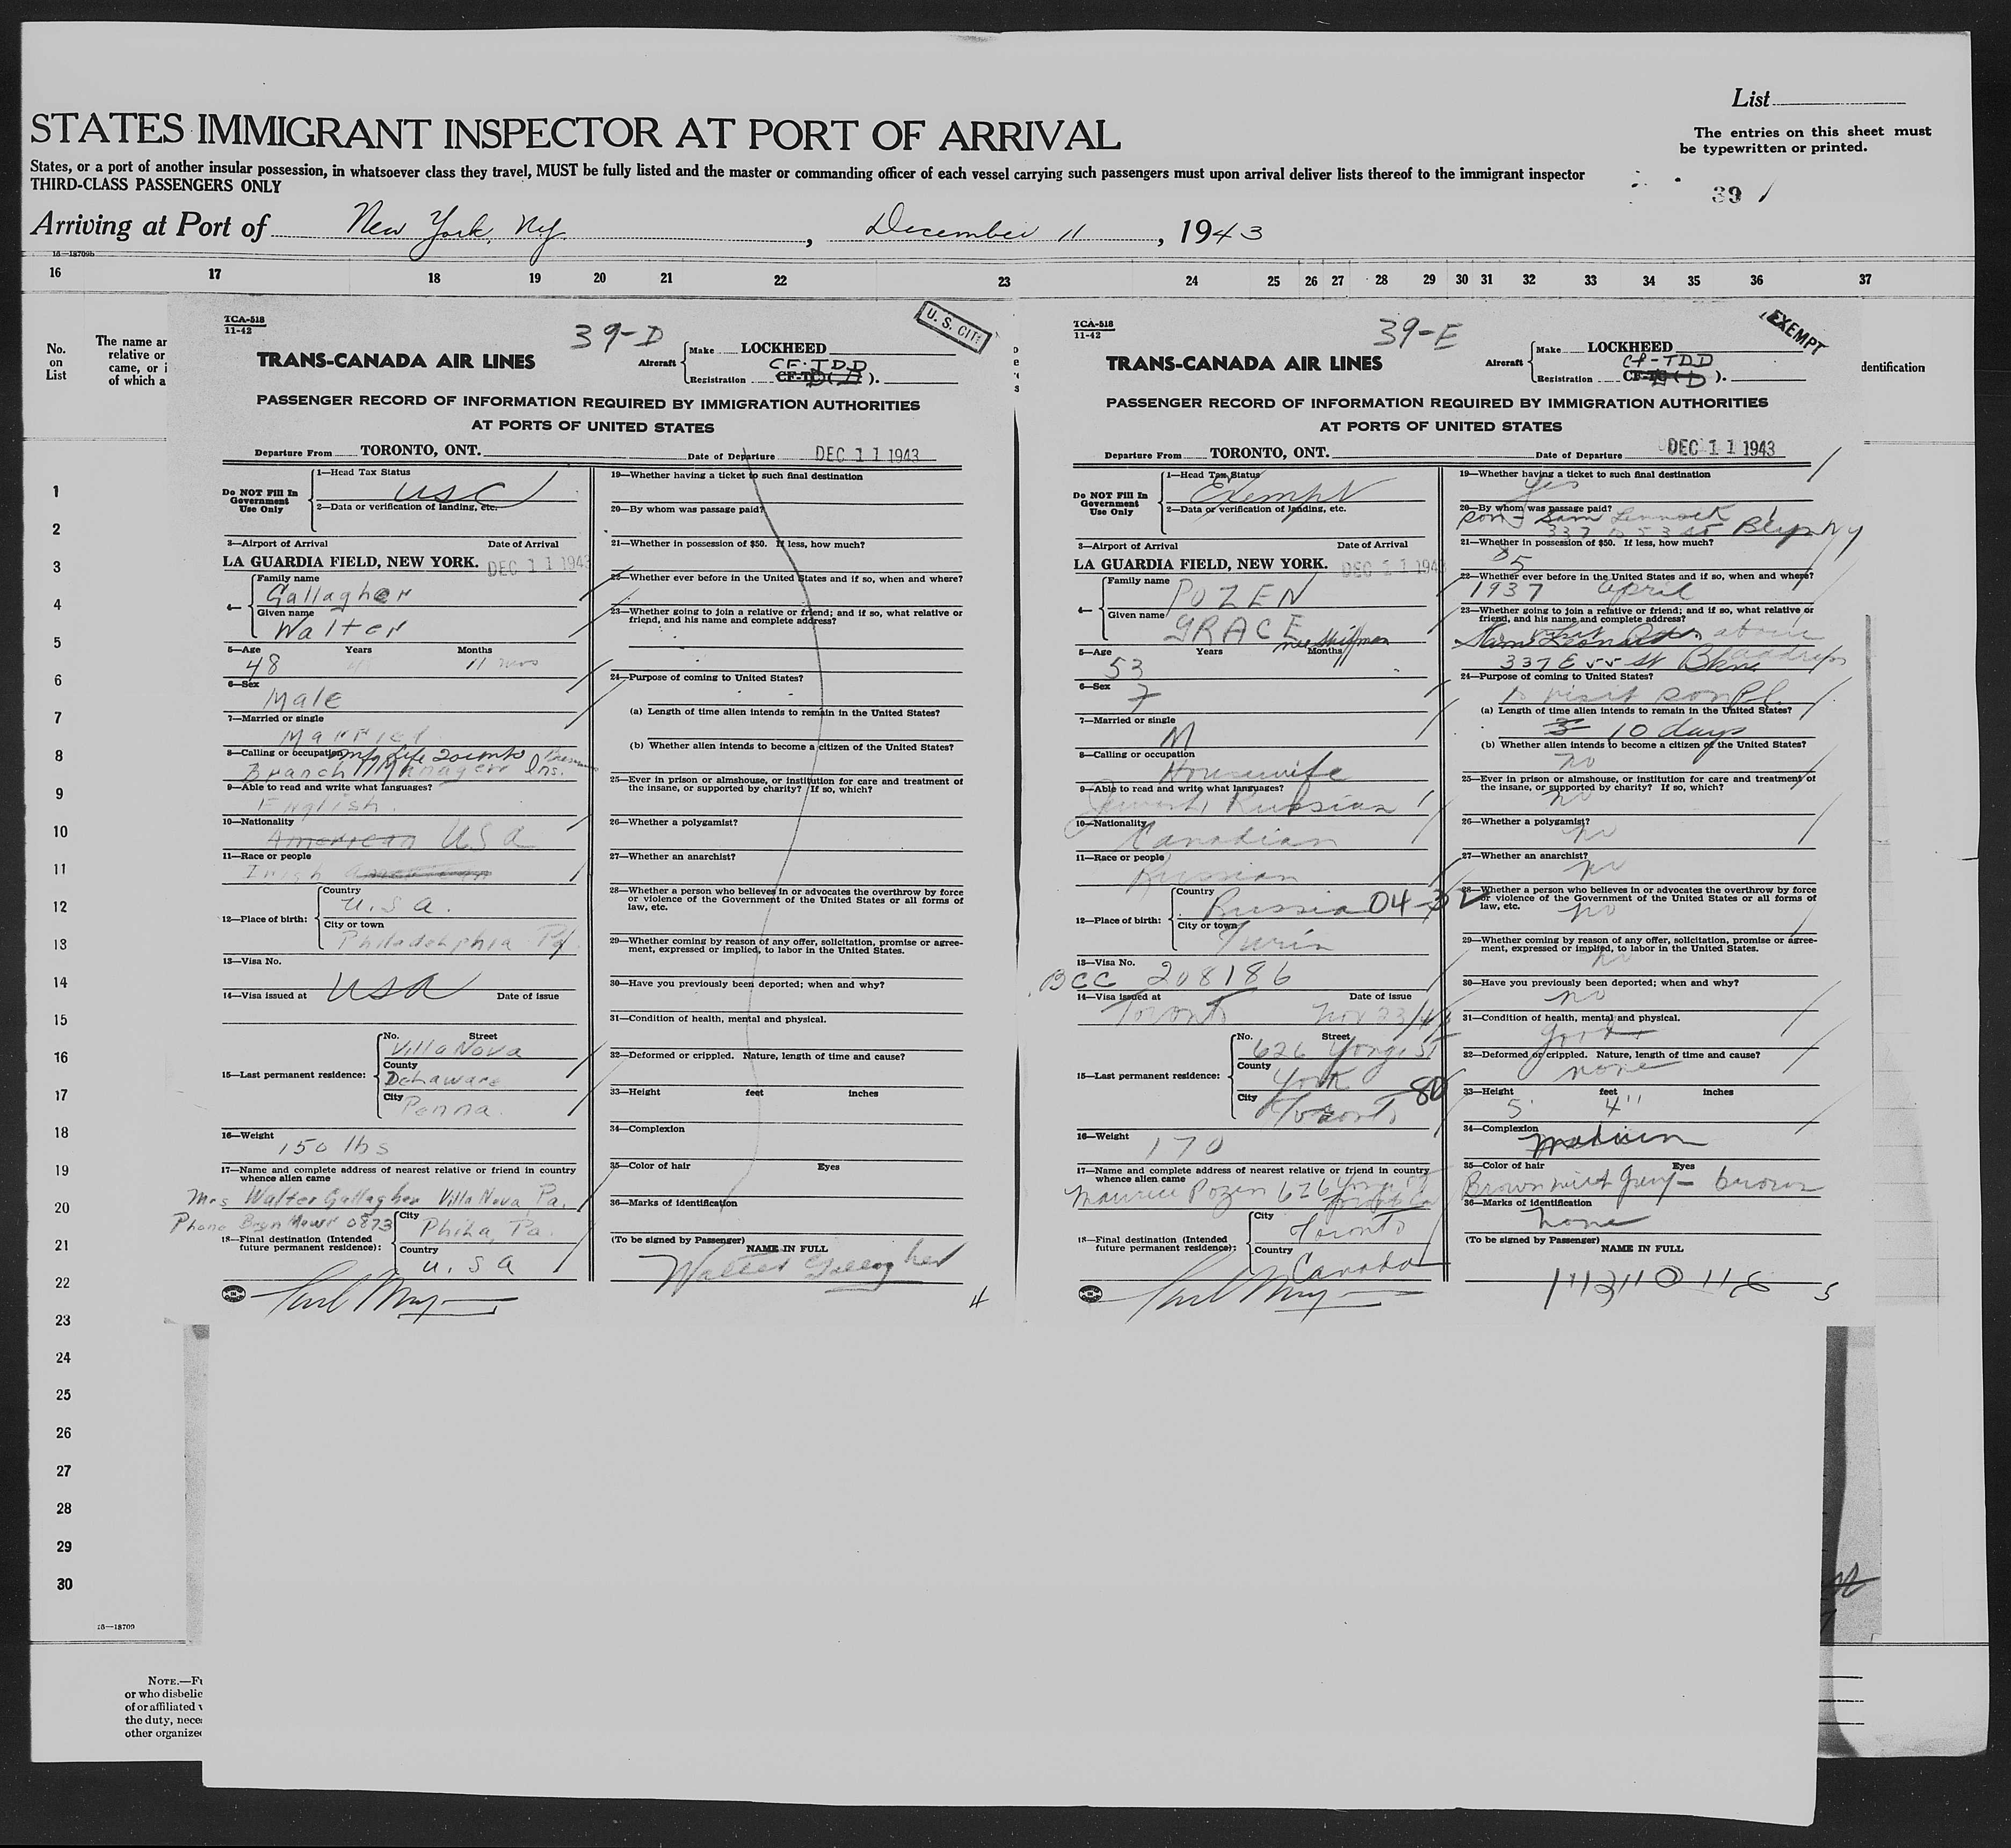 List
STATES IMMIGRANT INSPECTOR AT PORT OF ARRIVAL
The entries on this sheet must
be typewritten or printed.
States, or a port of another insular possession, in whatsoever class they travel, MUST be fully listed and the master or commanding officer of each vessel carrying such passengers must upon arrival deliver lists thereof to the immigrant inspector
THIRD-CLASS PASSENGERS ONLY
39 1
Arriving at Port of New York, NY, December 11, 1943
16—18709b
16 17 18 19 20 21 22 23 24 25 26 27 28 29 30 31 32 33 34 35 36 37
No.
on
List
The name ar
relative or
came, or i
of which a
dentification
1
2
3
4
5
6
7
8
9
10
11
12
13
14
15
16
17
18
19
20
21
22
23
24
25
26
27
28
29
30
16—18709
NOTE.—Fu
or who disbelie
of or affiliated v
the duty, neces
other organized
TCA-518
11-42
39-D
U. S. CIT.
TRANS-CANADA AIR LINES
Aircraft
Make LOCKHEED
CF-TDD
Registration CF-TC ( D ).
PASSENGER RECORD OF INFORMATION REQUIRED BY IMMIGRATION AUTHORITIES
AT PORTS OF UNITED STATES
Departure From TORONTO, ONT. Date of Departure DEC 11 1943
Do NOT Fill In
Government
Use Only
1—Head Tax Status
USC
2—Data or verification of landing, etc.
3—Airport of Arrival Date of Arrival
LA GUARDIA FIELD, NEW YORK. DEC 11 1943
4—
Family name
Gallagher
Given name
Walter
5—Age Years Months
48 11 mos
6—Sex
Male
7—Married or single
Married
8—Calling or occupation
Branch Manager Ins.
9—Able to read and write what languages?
English.
10—Nationality
American USA
11—Race or people
Irish American
12—Place of birth:
Country
U.S.A.
City or town
Philadelphia Pa.
13—Visa No.
USA
14—Visa issued at Date of issue
15—Last permanent residence:
No. Street
Villa Nova
County
Delaware
City
Penna.
16—Weight
150 lbs
17—Name and complete address of nearest relative or friend in country
whence alien came
Mrs Walter Gallagher Villa Nova, Pa.
Phone Bryn Mawr 0873
18—Final destination (Intended
future permanent residence):
City
Phila, Pa.
Country
U.S.A
19—Whether having a ticket to such final destination
20—By whom was passage paid?
21—Whether in possession of $50. If less, how much?
22—Whether ever before in the United States and if so, when and where?
23—Whether going to join a relative or friend; and if so, what relative or
friend, and his name and complete address?
24—Purpose of coming to United States?
(a) Length of time alien intends to remain in the United States?
(b) Whether alien intends to become a citizen of the United States?
25—Ever in prison or almshouse, or institution for care and treatment of
the insane, or supported by charity? If so, which?
26—Whether a polygamist?
27—Whether an anarchist?
28—Whether a person who believes in or advocates the overthrow by force
or violence of the Government of the United States or all forms of
law, etc.
29—Whether coming by reason of any offer, solicitation, promise or agree-
ment, expressed or implied, to labor in the United States.
30—Have you previously been deported; when and why?
31—Condition of health, mental and physical.
32—Deformed or crippled. Nature, length of time and cause?
33—Height feet inches
34—Complexion
35—Color of hair Eyes
36—Marks of identification
(To be signed by Passenger)
NAME IN FULL
Walter Gallagher
4
TCA-518
11-42
39-E
EXEMPT
TRANS-CANADA AIR LINES
Aircraft
Make LOCKHEED
CF-TDD
Registration CF-TC ( D ).
PASSENGER RECORD OF INFORMATION REQUIRED BY IMMIGRATION AUTHORITIES
AT PORTS OF UNITED STATES
Departure From TORONTO, ONT. Date of Departure DEC 11 1943
Do NOT Fill In
Government
Use Only
1—Head Tax Status
Exempt
2—Data or verification of landing, etc.
3—Airport of Arrival Date of Arrival
LA GUARDIA FIELD, NEW YORK. DEC 11 194
4—
Family name
POZEN
Given name
GRACE
5—Age Years Months
53
6—Sex
F
7—Married or single
M
8—Calling or occupation
Housewife
9—Able to read and write what languages?
Jewish, Russian
10—Nationality
Canadian
11—Race or people
Russian
12—Place of birth:
Country
Russia 04-32
City or town
Turin
13—Visa No.
BCC 208186
14—Visa issued at Date of issue
Toronto Nov 23/43
15—Last permanent residence:
No. Street
626 Yonge St
County
York 80
City
Toronto
16—Weight
170
17—Name and complete address of nearest relative or friend in country
whence alien came
Maurice Pozen 626 Yonge St
18—Final destination (Intended
future permanent residence):
City
Toronto
Country
Canada
19—Whether having a ticket to such final destination
Yes
20—By whom was passage paid?
son - Sam
21—Whether in possession of $50. If less, how much?
22—Whether ever before in the United States and if so, when and where?
1937 April
23—Whether going to join a relative or friend; and if so, what relative or
friend, and his name and complete address?
above
address
24—Purpose of coming to United States?
to visit son
(a) Length of time alien intends to remain in the United States?
10 days
(b) Whether alien intends to become a citizen of the United States?
no
25—Ever in prison or almshouse, or institution for care and treatment of
the insane, or supported by charity? If so, which?
no
26—Whether a polygamist?
no
27—Whether an anarchist?
no
28—Whether a person who believes in or advocates the overthrow by force
or violence of the Government of the United States or all forms of
law, etc.
no
29—Whether coming by reason of any offer, solicitation, promise or agree-
ment, expressed or implied, to labor in the United States.
no
30—Have you previously been deported; when and why?
no
31—Condition of health, mental and physical.
good
32—Deformed or crippled. Nature, length of time and cause?
none
33—Height feet inches
5' 4"
34—Complexion
medium
35—Color of hair Eyes
Brown mixed Grey - brown
36—Marks of identification
none
(To be signed by Passenger)
NAME IN FULL
5